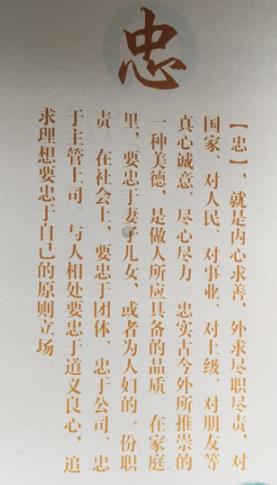 忠
【忠】，就是内心求善，外求尽职尽责，对
国家、对人民、对事业、对上级、对朋友等
真心诚意、尽心尽力 忠实古今外所推崇的
一种美德，是做人所应具备的品质 在家庭
里，要忠于妻子儿女，或者为人妇的一份职
责 在社会上，要忠于团体、忠于公司、忠
于主管上司 与人相处要忠于道义良心，追
求理想要忠于自己的原则立场